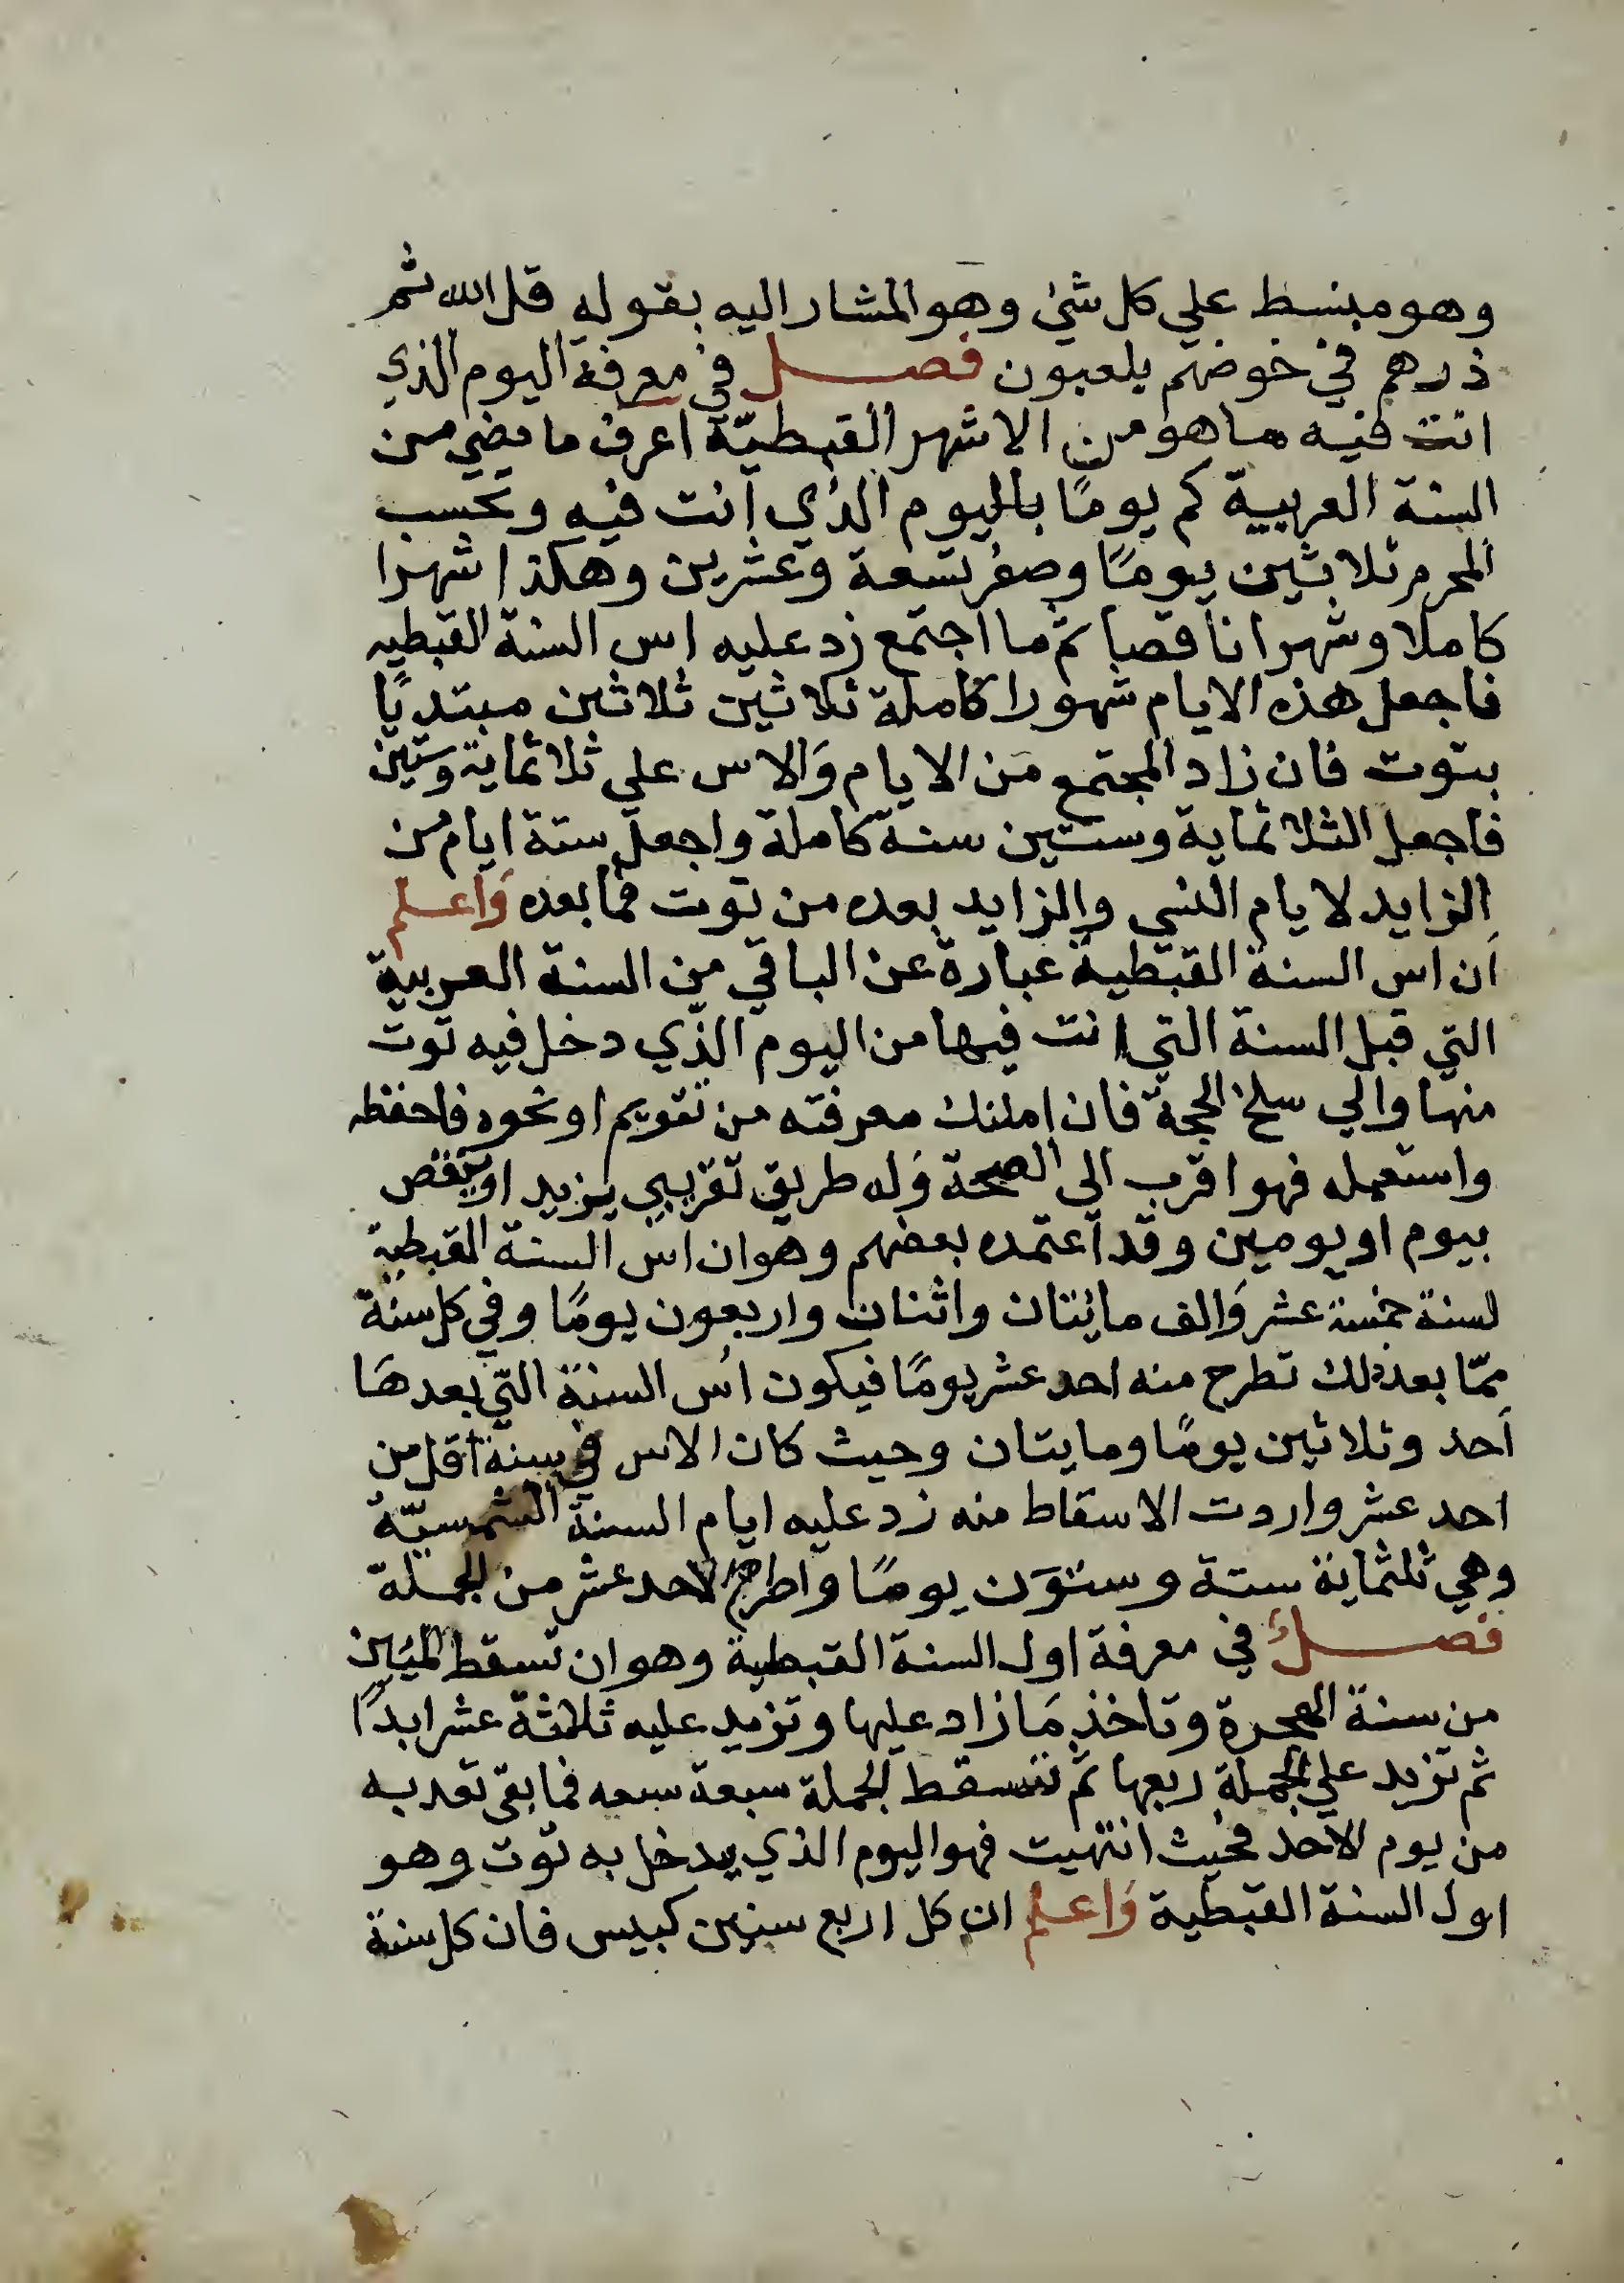 وهو مبنسط علي كل شئ وهو المشار اليه بقوله قل الله ثم
ذرهم في خوضهم يلعبون فصل في معرفة اليوم الذي
انت فيه ما هو من الاشهر القبطيّة اعرف ما مضي من
السنة العربية كم يومًا باليوم الذي انت فيه وتحسب
المحرم ثلاثين يومًا وصفر تسعة وعشرين وهكذا شهرا
كاملا وشهرا ناقصا ثم ما اجتمع زد عليه اس السنة القبطيه
فاجعل هذه الايام شهورا كاملة ثلاثين ثلاثين مبتديًا
بتوت فان زاد المجتمع من الايام والاس علي ثلاثماية وستين
فاجعل الثلاثماية وستين سنة كاملة واجعل ستة ايام من
الزايد لايام النسي والزايد بعده من توت فما بعده وَاعلم
ان اس السنة القبطية عبارة عن الباقي من السنة العربية
التي قبل السنة التي انت فيها من اليوم الذي دخل فيه توت
منها والي سلخ الحجة فان امكنك معرفته من تقويم او نحوه فاحفظه
واستعمله فهو اقرب الي الصحة وله طريق تقريبي يزيد او ينقص
بيوم او يومين وقد اعتمده بعضهم وهو ان اس السنة القبطية
لسنة خمسة عشر وَالف مائتان واثنان واربعون يومًا وفي كل سنة
ممّا بعد ذلك تطرح منه احد عشر يومًا فيكون اس السنة التي بعدهَا
احد وثلاثين يومًا ومايتان وحيث كان الاس في سنة اقل من
احد عشر واردت الاسقاط منه زد عليه ايام السنة الشمسيّة
وهي ثلثماية ستة وستون يومًا واطرح الاحد عشر من الجملة
فصل في معرفة اول السنة القبطية وهو ان تسقط الميين
من سنة الهجرة وتاخذ مَا زاد عليها وتزيد عليه ثلاثة عشر ابدًا
ثم تزيد علي الجملة ربعها ثم تسقط الجملة سبعة سبعه فما بقي تعد به
من يوم الاحد فحيث انتهيت فهو اليوم الذي يدخل به توت وهو
اول السنة القبطية وَاعلم ان كل اربع سنين كبيس فان كل سنة